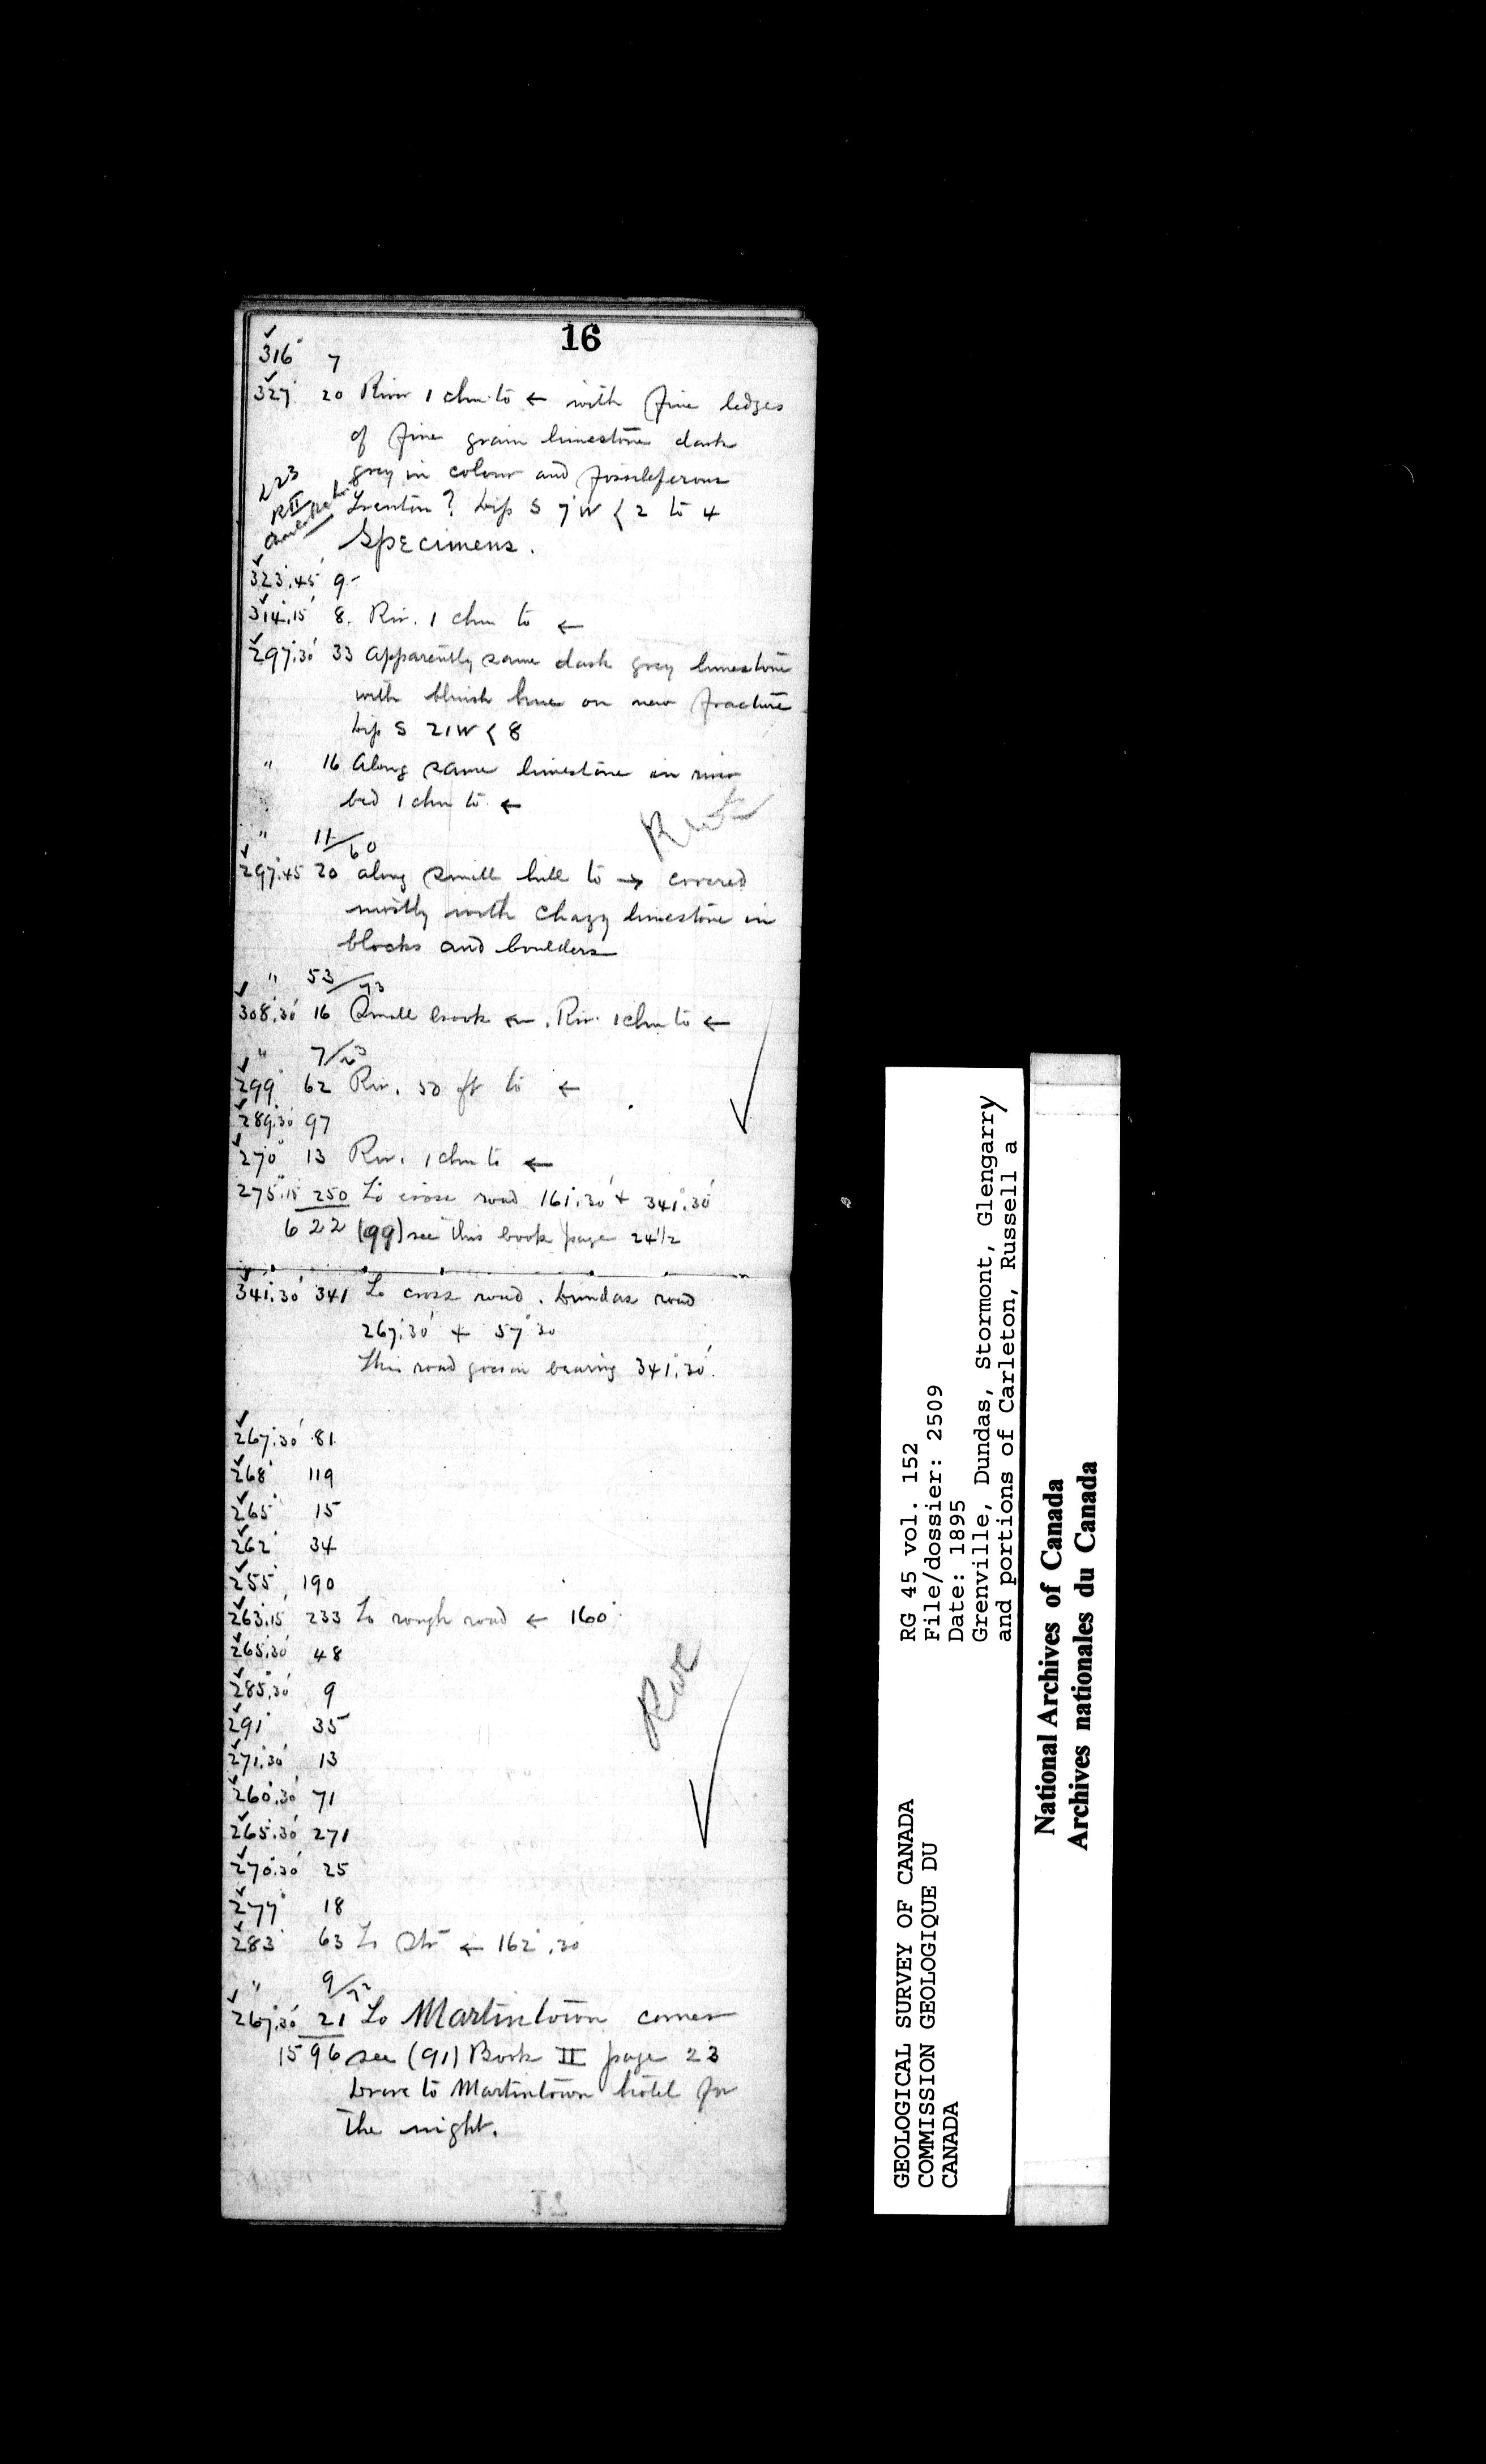 16
316° 7
327° 20 River 1 chn to ← with fine ledges
of fine grain limestone dark
grey in colour and fossiliferous
223
R II
Trenton? Dip S 7 W < 2 to 4
Specimens.
323°.45' 9
314°.15' 8. Riv. 1 chn to ←
297°.30' 33 Apparently same dark grey limestone
with bluish hue on new fracture
Dip S 21 W < 8
" 16 Along same limestone in river
bed 1 chn to ←
" 11/60
297°.45 20 along small hill to → covered
mostly with Chazy limestone in
blocks and boulders
" 53/73
308°.30' 16 Small brook ←. Riv. 1 chn to ←
" 7/23
299° 62 Riv. 50 ft to ←
289°.30' 97
270° 13 Riv. 1 chn to ←
275°.15' 250 To cross road 161°.30' + 341°.30'
622 (99) see this book page 24 1/2
341°.30' 341 To cross road. Dundas road
267°.30' + 57°30
This road goes on bearing 341°.30'.
267°.30' 81
268° 119
265° 15
262° 34
255° 190
263°.15' 233 To rough road ← 160°
265°.30' 48
285°.30' 9
291° 35
271°.30' 13
260°.30' 71
265°.30' 271
270°.30' 25
277° 18
283° 63 To Str ← 162°.30
" 9/72
267°.30' 21 To Martintown corner
1596 see (91) Book II page 23
Drove to Martintown hotel for
the night.
GEOLOGICAL SURVEY OF CANADA
COMMISSION GEOLOGIQUE DU
CANADA
RG 45 vol. 152
File/dossier: 2509
Date: 1895
Grenville, Dundas, Stormont, Glengarry
and portions of Carleton, Russell a
National Archives of Canada
Archives nationales du Canada